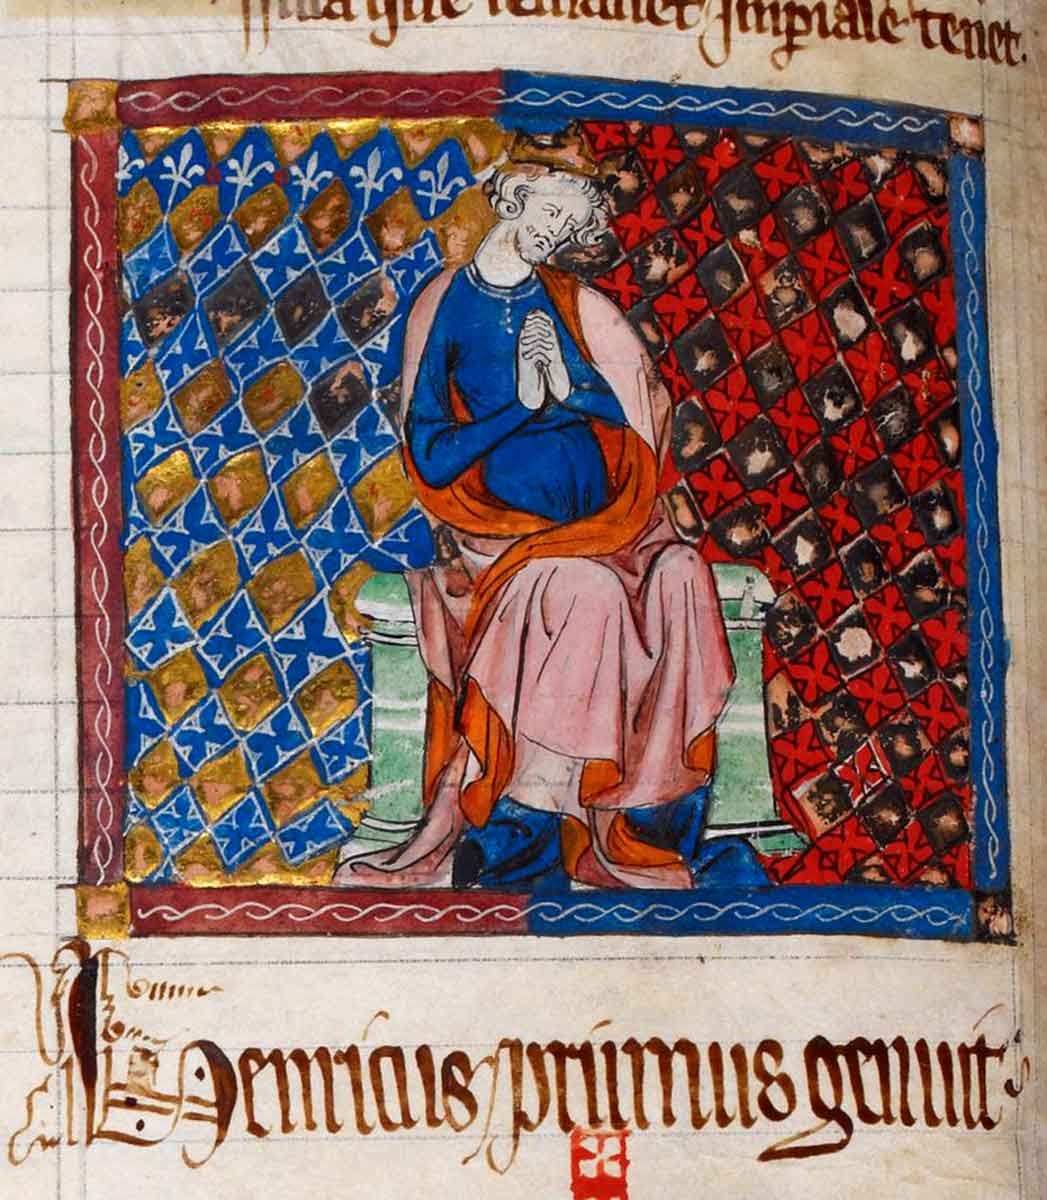 remanet Imꝑiale tenet.
Henricus primus genuit